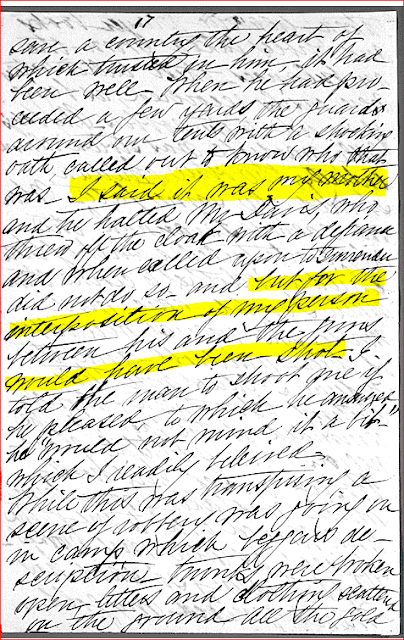 17
save a country the heart of
which trusted in him it had
been well. When he had pro-
ceeded a few yards the guards
around our tents with a shocking
oath called out to know who that
was. I said it was my mother
and he halted Mr Davis, who
threw off the cloak with a defiance
and when called upon to surrender
did not do so and but for the
interposition of my person
between his and the guns
would have been shot. I
told the man to shoot me if
he pleased to which he answered
he "would not mind it a bit"
which I readily believed.
While this was transpiring a
scene of robbery was going on
in camp which beggars de-
scription trunks were broken
open, letters and clothing scattered
on the ground all the gold